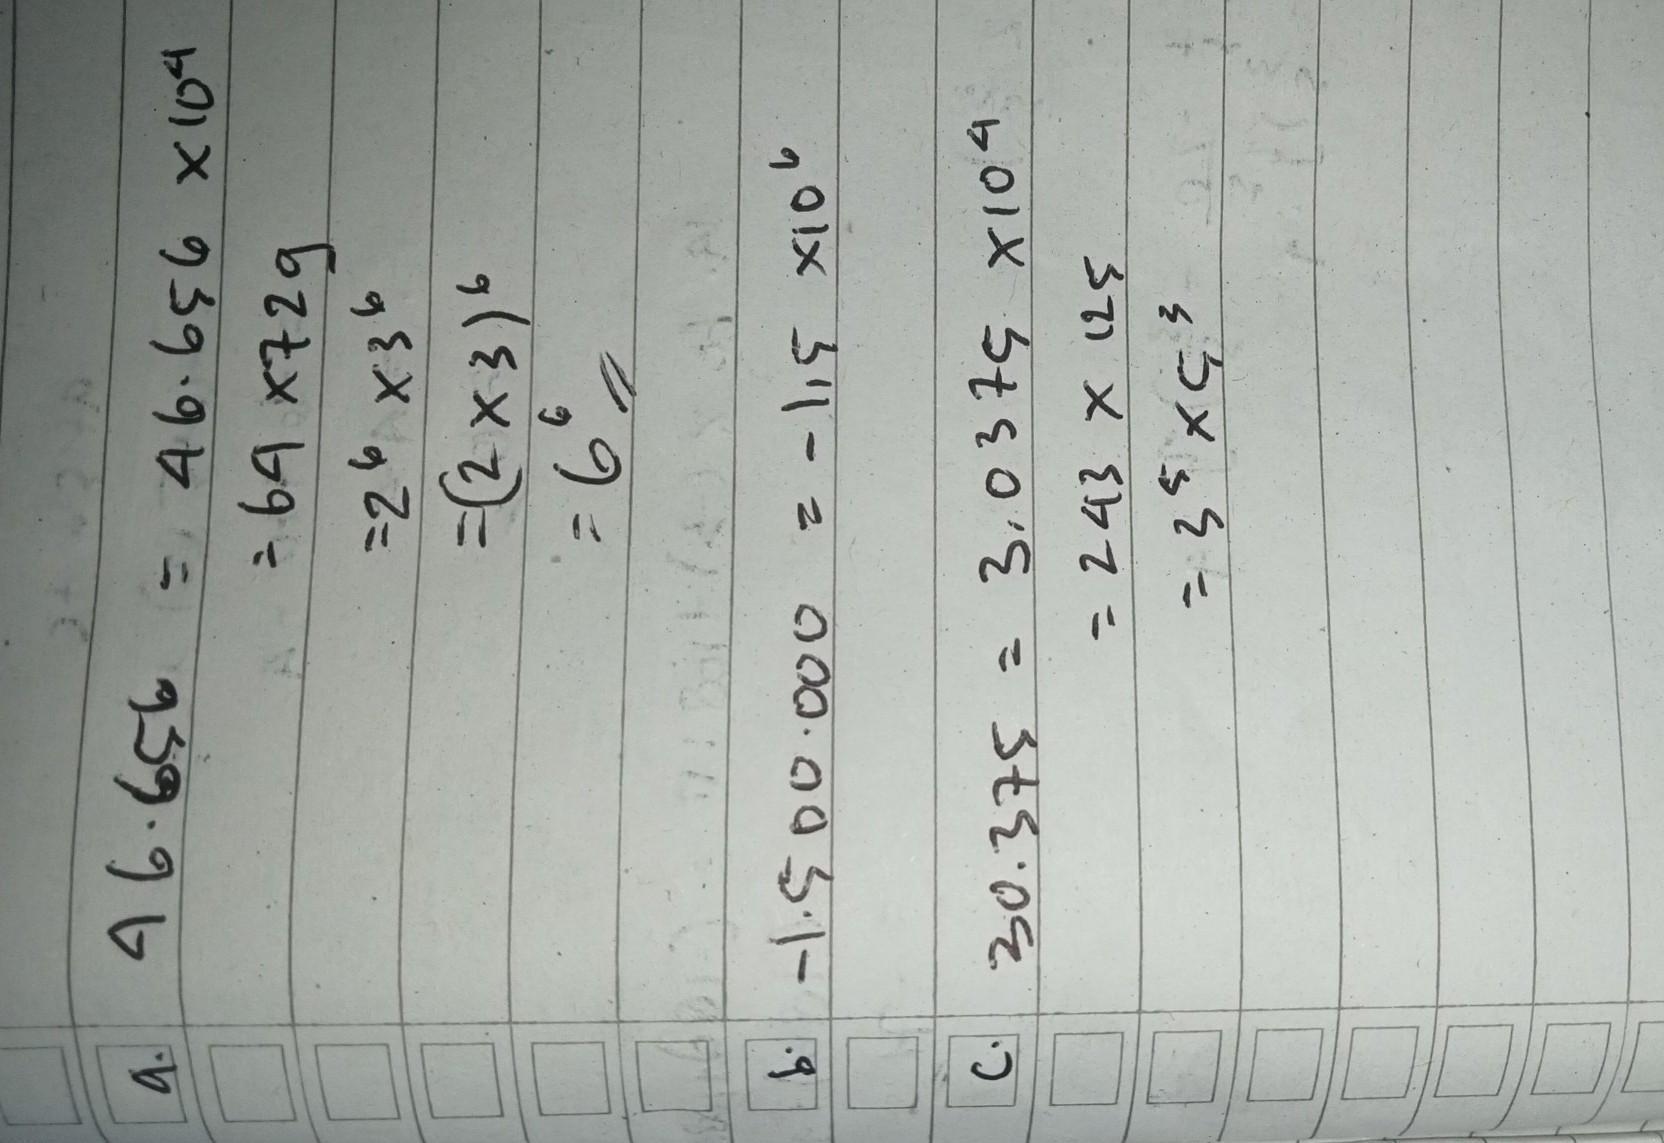 a. 46.656 = 46.656 x 10⁴
= 64 x 729
= 2⁶ x 3⁶
= (2 x 3)⁶
= 6⁶
b. -1.500.000 = -1,5 x 10⁶
c. 30.375 = 3,0375 x 10⁴
= 243 x 125
= 3⁵ x 5³